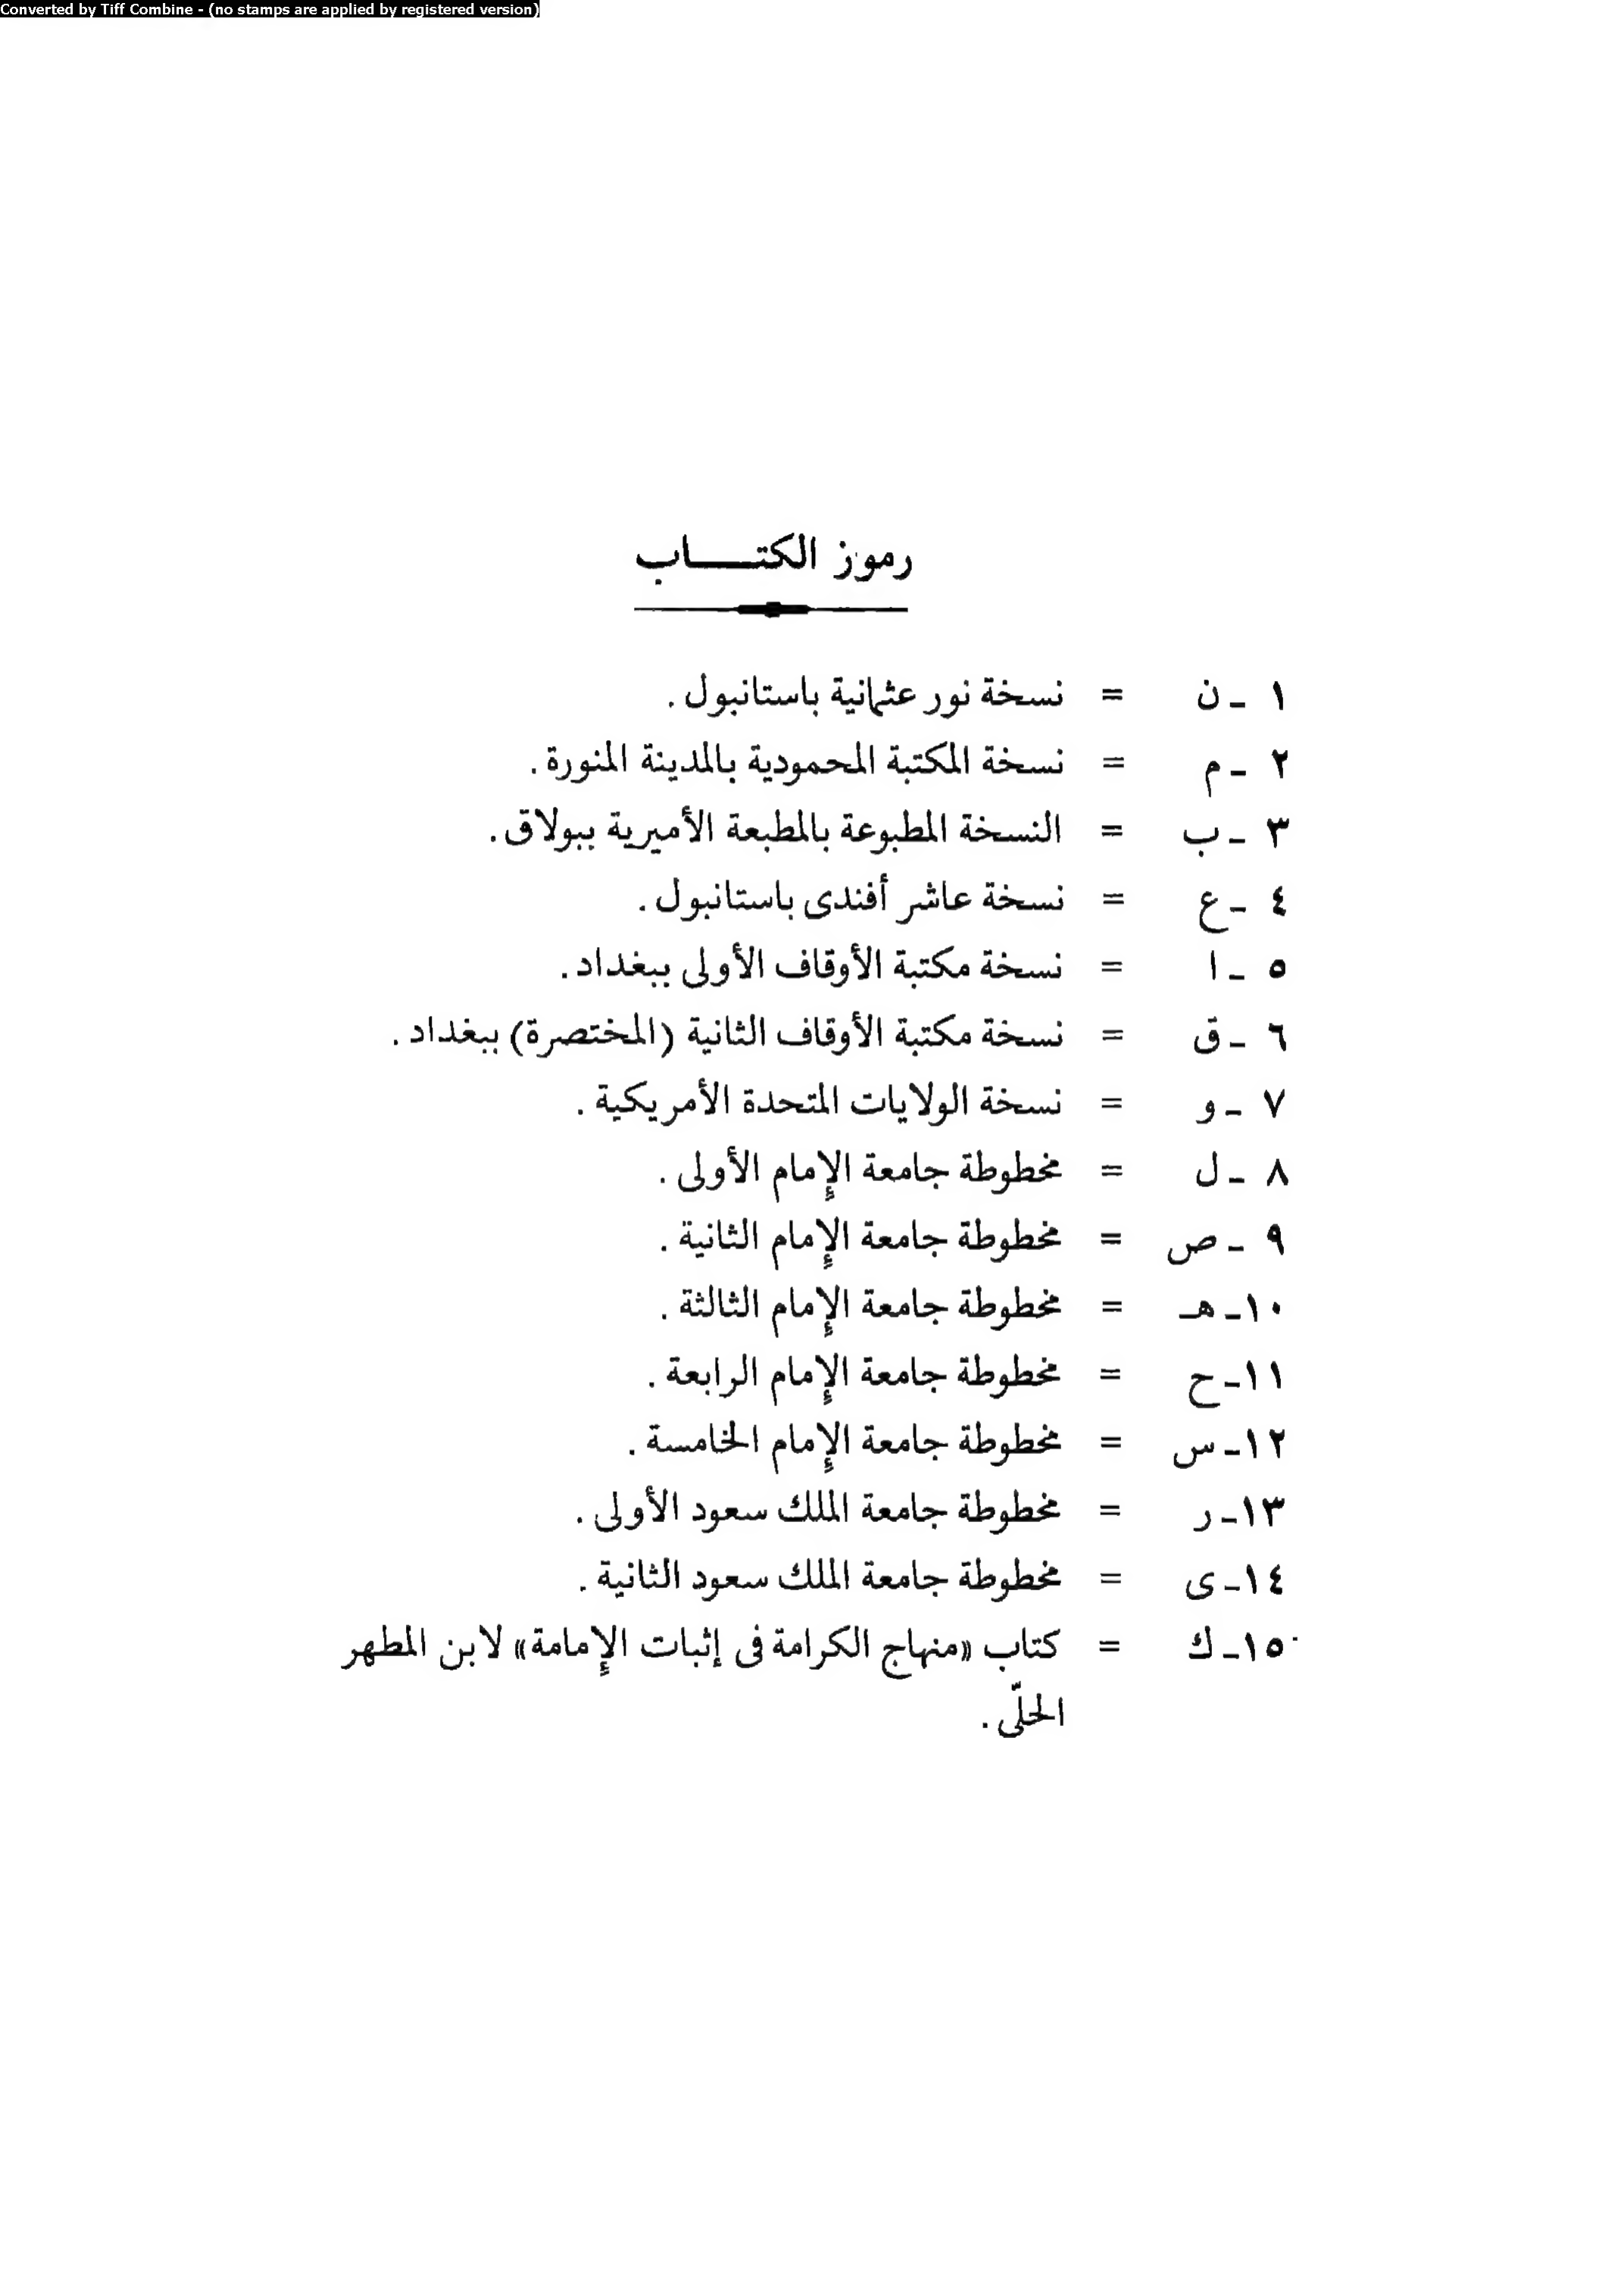 Converted by Tiff Combine - (no stamps are applied by registered version)
رموز الكتـــــاب
١ - ن = نسخة نور عثمانية باستانبول .
٢ - م = نسخة المكتبة المحمودية بالمدينة المنورة .
٣ - ب = النسخة المطبوعة بالمطبعة الأميرية ببولاق .
٤ - ع = نسخة عاشر أفندى باستانبول .
٥ - ا = نسخة مكتبة الأوقاف الأولى ببغداد .
٦ - ق = نسخة مكتبة الأوقاف الثانية (المختصرة) ببغداد .
٧ - و = نسخة الولايات المتحدة الأمريكية .
٨ - ل = مخطوطة جامعة الإمام الأولى .
٩ - ص = مخطوطة جامعة الإمام الثانية .
١٠- هـ = مخطوطة جامعة الإمام الثالثة .
١١- ح = مخطوطة جامعة الإمام الرابعة .
١٢- س = مخطوطة جامعة الإمام الخامسة .
١٣- ر = مخطوطة جامعة الملك سعود الأولى .
١٤- ى = مخطوطة جامعة الملك سعود الثانية .
١٥- ك = كتاب «منهاج الكرامة فى إثبات الإمامة» لابن المطهر
الحلّى .